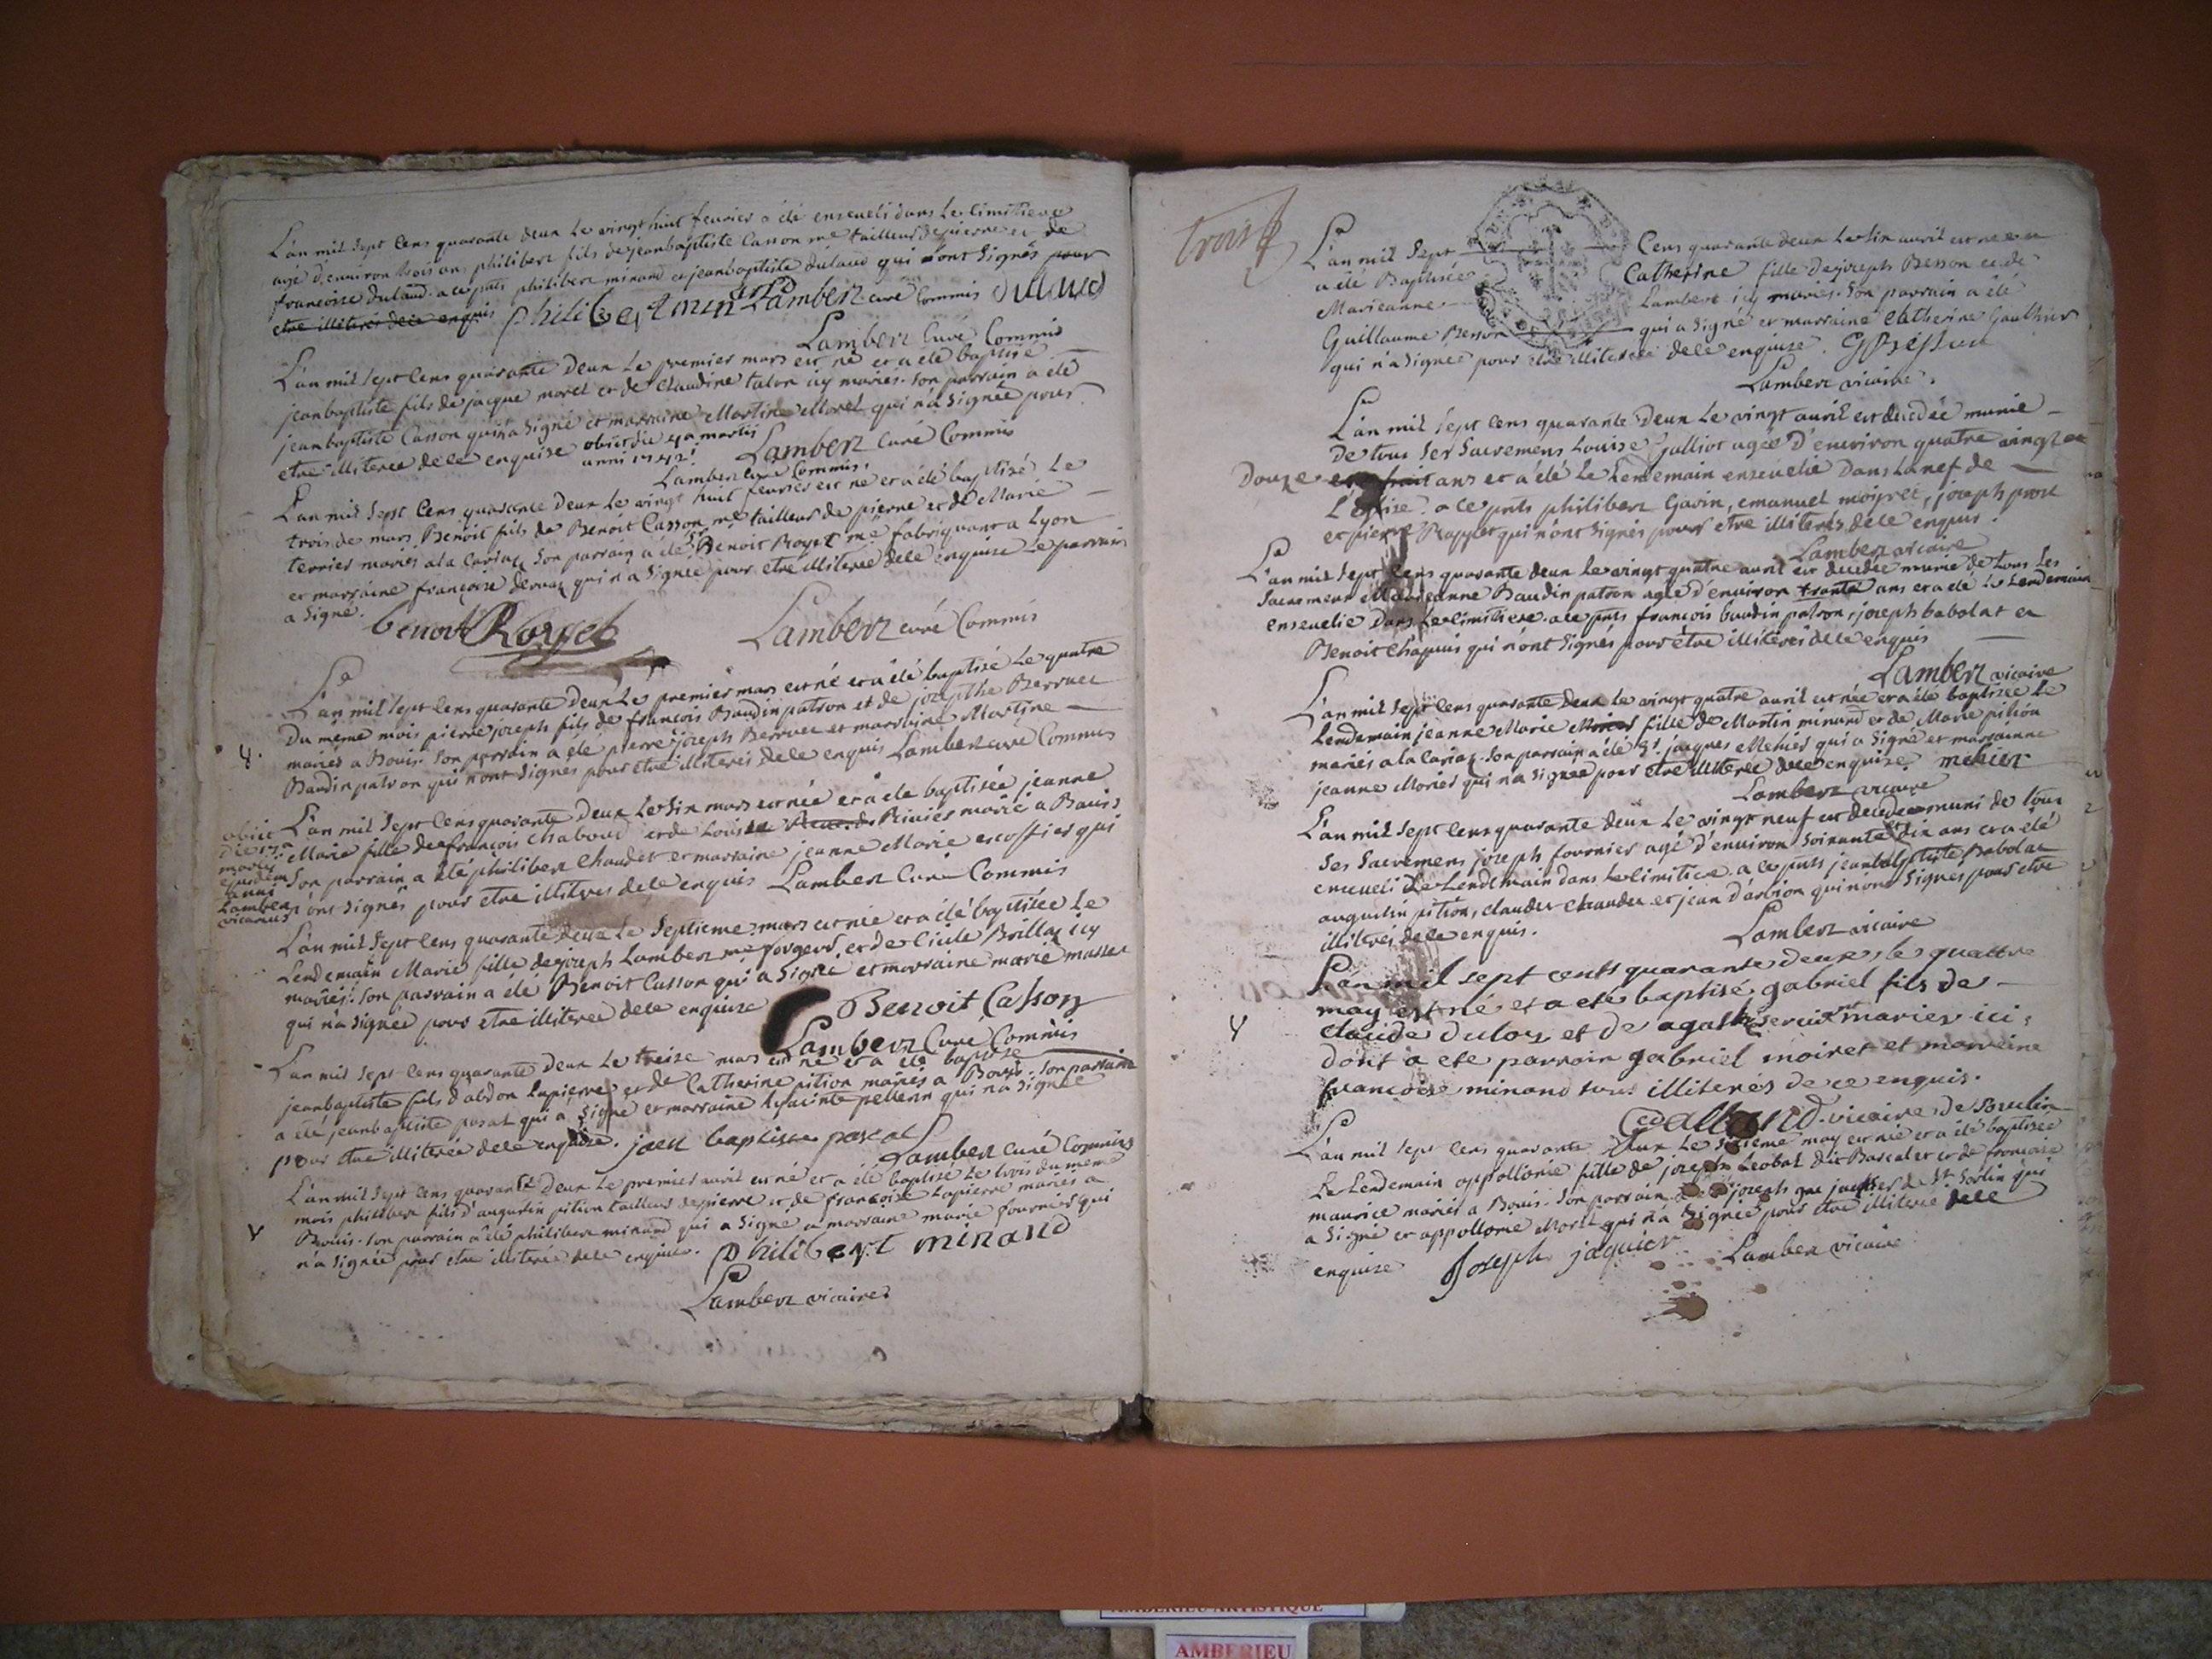 L'an mil sept cens quarante deux le vingt huit feurier a été enseueli dans le cimitiere
agé d'enuiron trois ans philibert fils de jeanbaptiste Casson me tailleur de pierre et de
francoise dulaud. a ce pnts philibert minand et jeanbaptiste dulaud qui ont signés pour
etre illiterés de ce enquis philibert minand Lambert curé Commis dulaud
Lambert Curé Commis
L'an mil sept cens quarante deux le premier mars est né et a été baptisé
jeanbaptiste fils de jacque morel et de Claudine talon icy mariés. son parrain a été
jeanbaptiste Casson qui a signé et marraine Martine Morel qui n'a signée pour
etre illiteree de ce enquise obiit die 4a martis Lambert Curé Commis
anni 1742.
Lambert Curé Commis.
L'an mil sept cens quarante deux le vingt huit feurier est né et a été baptisé le
trois de mars Benoit fils de Benoit Casson me tailleur de pierre et de Marie
terrier mariés a la Cariaz son parrain a été Sr Benoit Royet me fabriquant a Lyon
et marraine françoise deruaz qui n'a signée pour etre illiterée de ce enquise le parrain
a signé.
benoit Royet Lambert curé Commis
L'an mil sept cens quarante deux le premier mars est né et a été baptisé le quatre
du même mois pierre joseph fils de francois Baudin patron et de josepthe Berruet
mariés a Bouis. son parrain a été pierre joseph Berruet et marraine Martine
Baudin patron qui n'ont signés pour etre illiterés de ce enquis Lambert curé Commis
L'an mil sept cens quarante deux le six mars est née et a été baptisée jeanne
obiit
die 17a
martis
ejusdem
anni
Lambert
vicarius
Marie fille de francois Chaboud et de Louise Riuier marié a Bouis
son parrain a été philibert Chaudet et marraine jeanne Marie escoffier qui
n'ont signés pour etre illitres de ce enquis Lambert Curé Commis
L'an mil sept cens quarante deux le septieme mars est née et a été baptisée le
Lendemain Marie fille de joseph Lambert me forgeur, et de Cicile Brillaz icy
mariés. son parrain a été Benoit Casson qui a signé et marraine marie masset
qui n'a signée pour etre illiteree de ce enquise Benoit Casson
Lambert Curé Commis
L'an mil sept cens quarante deux le treize mars est né et a été baptisé
jeanbaptiste fils d'abdon Lapierre et de Catherine pition mariés a Bouis. son parrain
a été jeanbaptiste pascal qui a signé et marraine hyacinte pellerin qui n'a signée
pour etre illiterée de ce enquise. jaen baptiste pascal
Lambert Curé Commis
L'an mil sept cens quarante deux le premier auril est né et a été baptisé le trois du meme
mois philibert fils d'augustin pition tailleur de pierre et de francoise Lapierre mariés a
Bouis. son parrain a été philibert minand qui a signé et marraine marie fournier qui
n'a signée pour etre illiterée de ce enquise. philibert minand
Lambert vicaire
trois
L'an mil sept cens quarante deux le six auril est nee et
a été Baptisée Catherine fille de joseph Besson et de
Marieanne Lambert icy mariés. son parrain a été
Guillaume Besson qui a signé et marraine Catherine Gauthier
qui n'a signée pour etre illiterée de ce enquise. GBesson
Lambert vicaire.
L'an mil sept cens quarante deux le vingt auril est decedée munie
de tous ses sacremens Louise Galliot agée d'enuiron quatre vingt et
Douze ans et a été le Lendemain enseuelie dans la nef de
L'eglise. a ce pnts philibert Gavin, emanuel moiret, joseph prost
et pierre Rappet qui n'ont signés pour etre illiterés de ce enquis.
Lambert vicaire
L'an mil sept cens quarante deux le vingt quatre auril est decedée munie de tous les
sacremens Marieanne Baudin patron agée d'enuiron trante ans et a été le Lendemain
enseuelie dans le cimitiere. a ce pnts françois baudin patron, joseph babolat et
Benoit Chapuis qui n'ont signés pour être illiterés de ce enquis
Lambert vicaire
L'an mil sept cens quarante deux le vingt quatre auril est née et a été baptisée le
Lendemain jeanne Marie fille de Martin minand et de Marie pition
mariés a la Cariaz. son parrain a été Sr. jacques Mehier qui a signé et marrainne
jeanne Morier qui n'a signee pour etre illiterée de ce enquise. mehier
Lambert vicaire
L'an mil sept cens quarante deux le vingt neuf est decede muni de tous
ses sacremens joseph fournier agé d'enuiron soixante et dix ans et a été
enseueli le Lendemain dans le cimitiere. a ce pnts jeanbaptiste Babolat
augustin pition, claude Chaudet et jean d'arion qui n'ont signés pour etre
illiterés de ce enquis. Lambert vicaire
L'an mil sept cents quarante deux le quattre
may est né et a eté baptisé gabriel fils de
claude duloz et de agathe mariés ici,
dont a eté parrain gabriel moiret et marraine
françoise minand tous illiterés de ce enquis.
Galland vicaire de
L'an mil sept cens quarante deux le sixieme may est née et a été baptisée
Le Lendemain appollonie fille de joseph Leobat dit Bascalet et de francoise
maurice mariés a Bouis. son parrain a été joseph jaquier de St Sorlin qui
a signé et appollonie Morel qui n'a signée pour etre illiterée de ce
enquise Joseph jaquier Lambert vicaire
AMBERIEU ARTISTIQUE
AMBERIEU